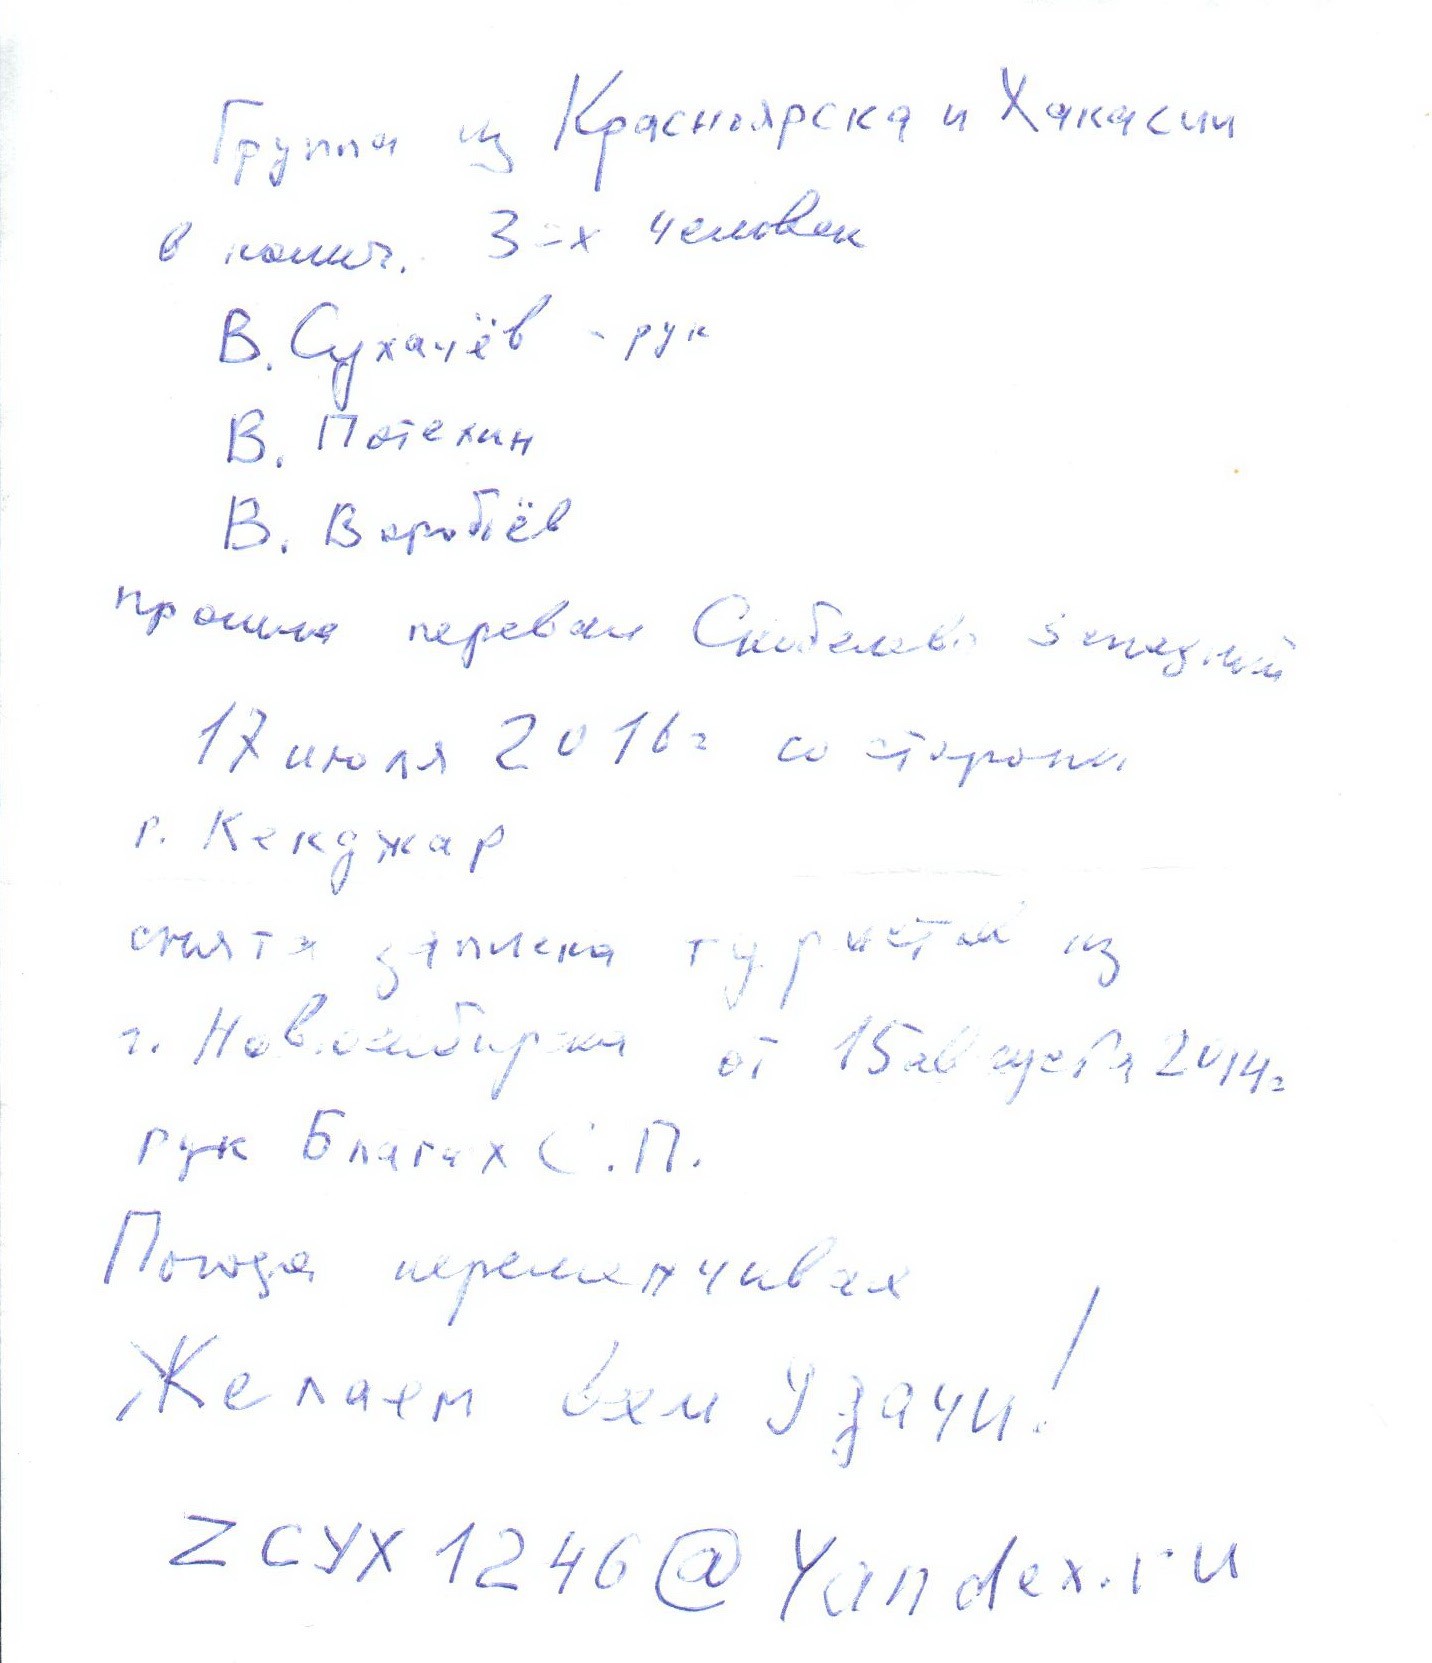 Группа из Красноярска и Хакасии
в колич. 3=х человек
В. Сухачёв - рук
В. Потехин
В. Воробьёв
прошла перевал Скобелева Западный
17 июля 2016г со стороны
г. Кекджар
снята записка туристов из
г. Новосибирска от 15 августа 2014г
рук Благих С.П.
Погода переменчивая
Желаем вам удачи!
ZСУХ1246@Yandex.ru